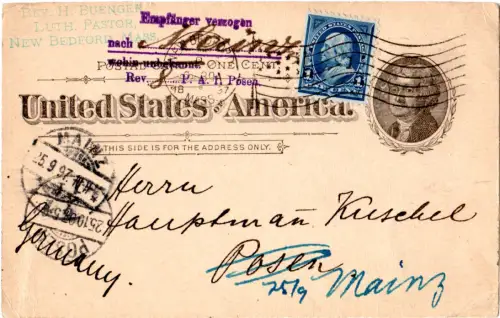 Rev. H. Buenger
Luth. Pastor,
New Bedford, Mass.
Empfänger verzogen
nach Mainz
wohin unbekannt
Rev. P. A. 1 Posen.
Postal Card One Cent
United States America.
THIS SIDE IS FOR THE ADDRESS ONLY.
MAINZ
Herrn
Hauptmañ Kuschel
Posen
Germany.
25/9 Mainz